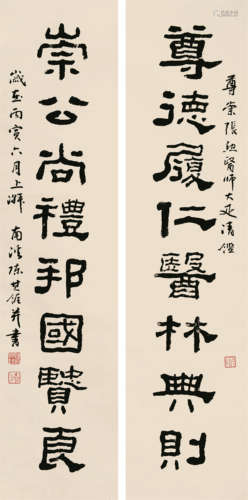 尊德履仁醫林典則
尊崇張醫師大清鑑
崇公尚禮邦國賢良
歲在丙寅六月上澣 南 陳其銓並書